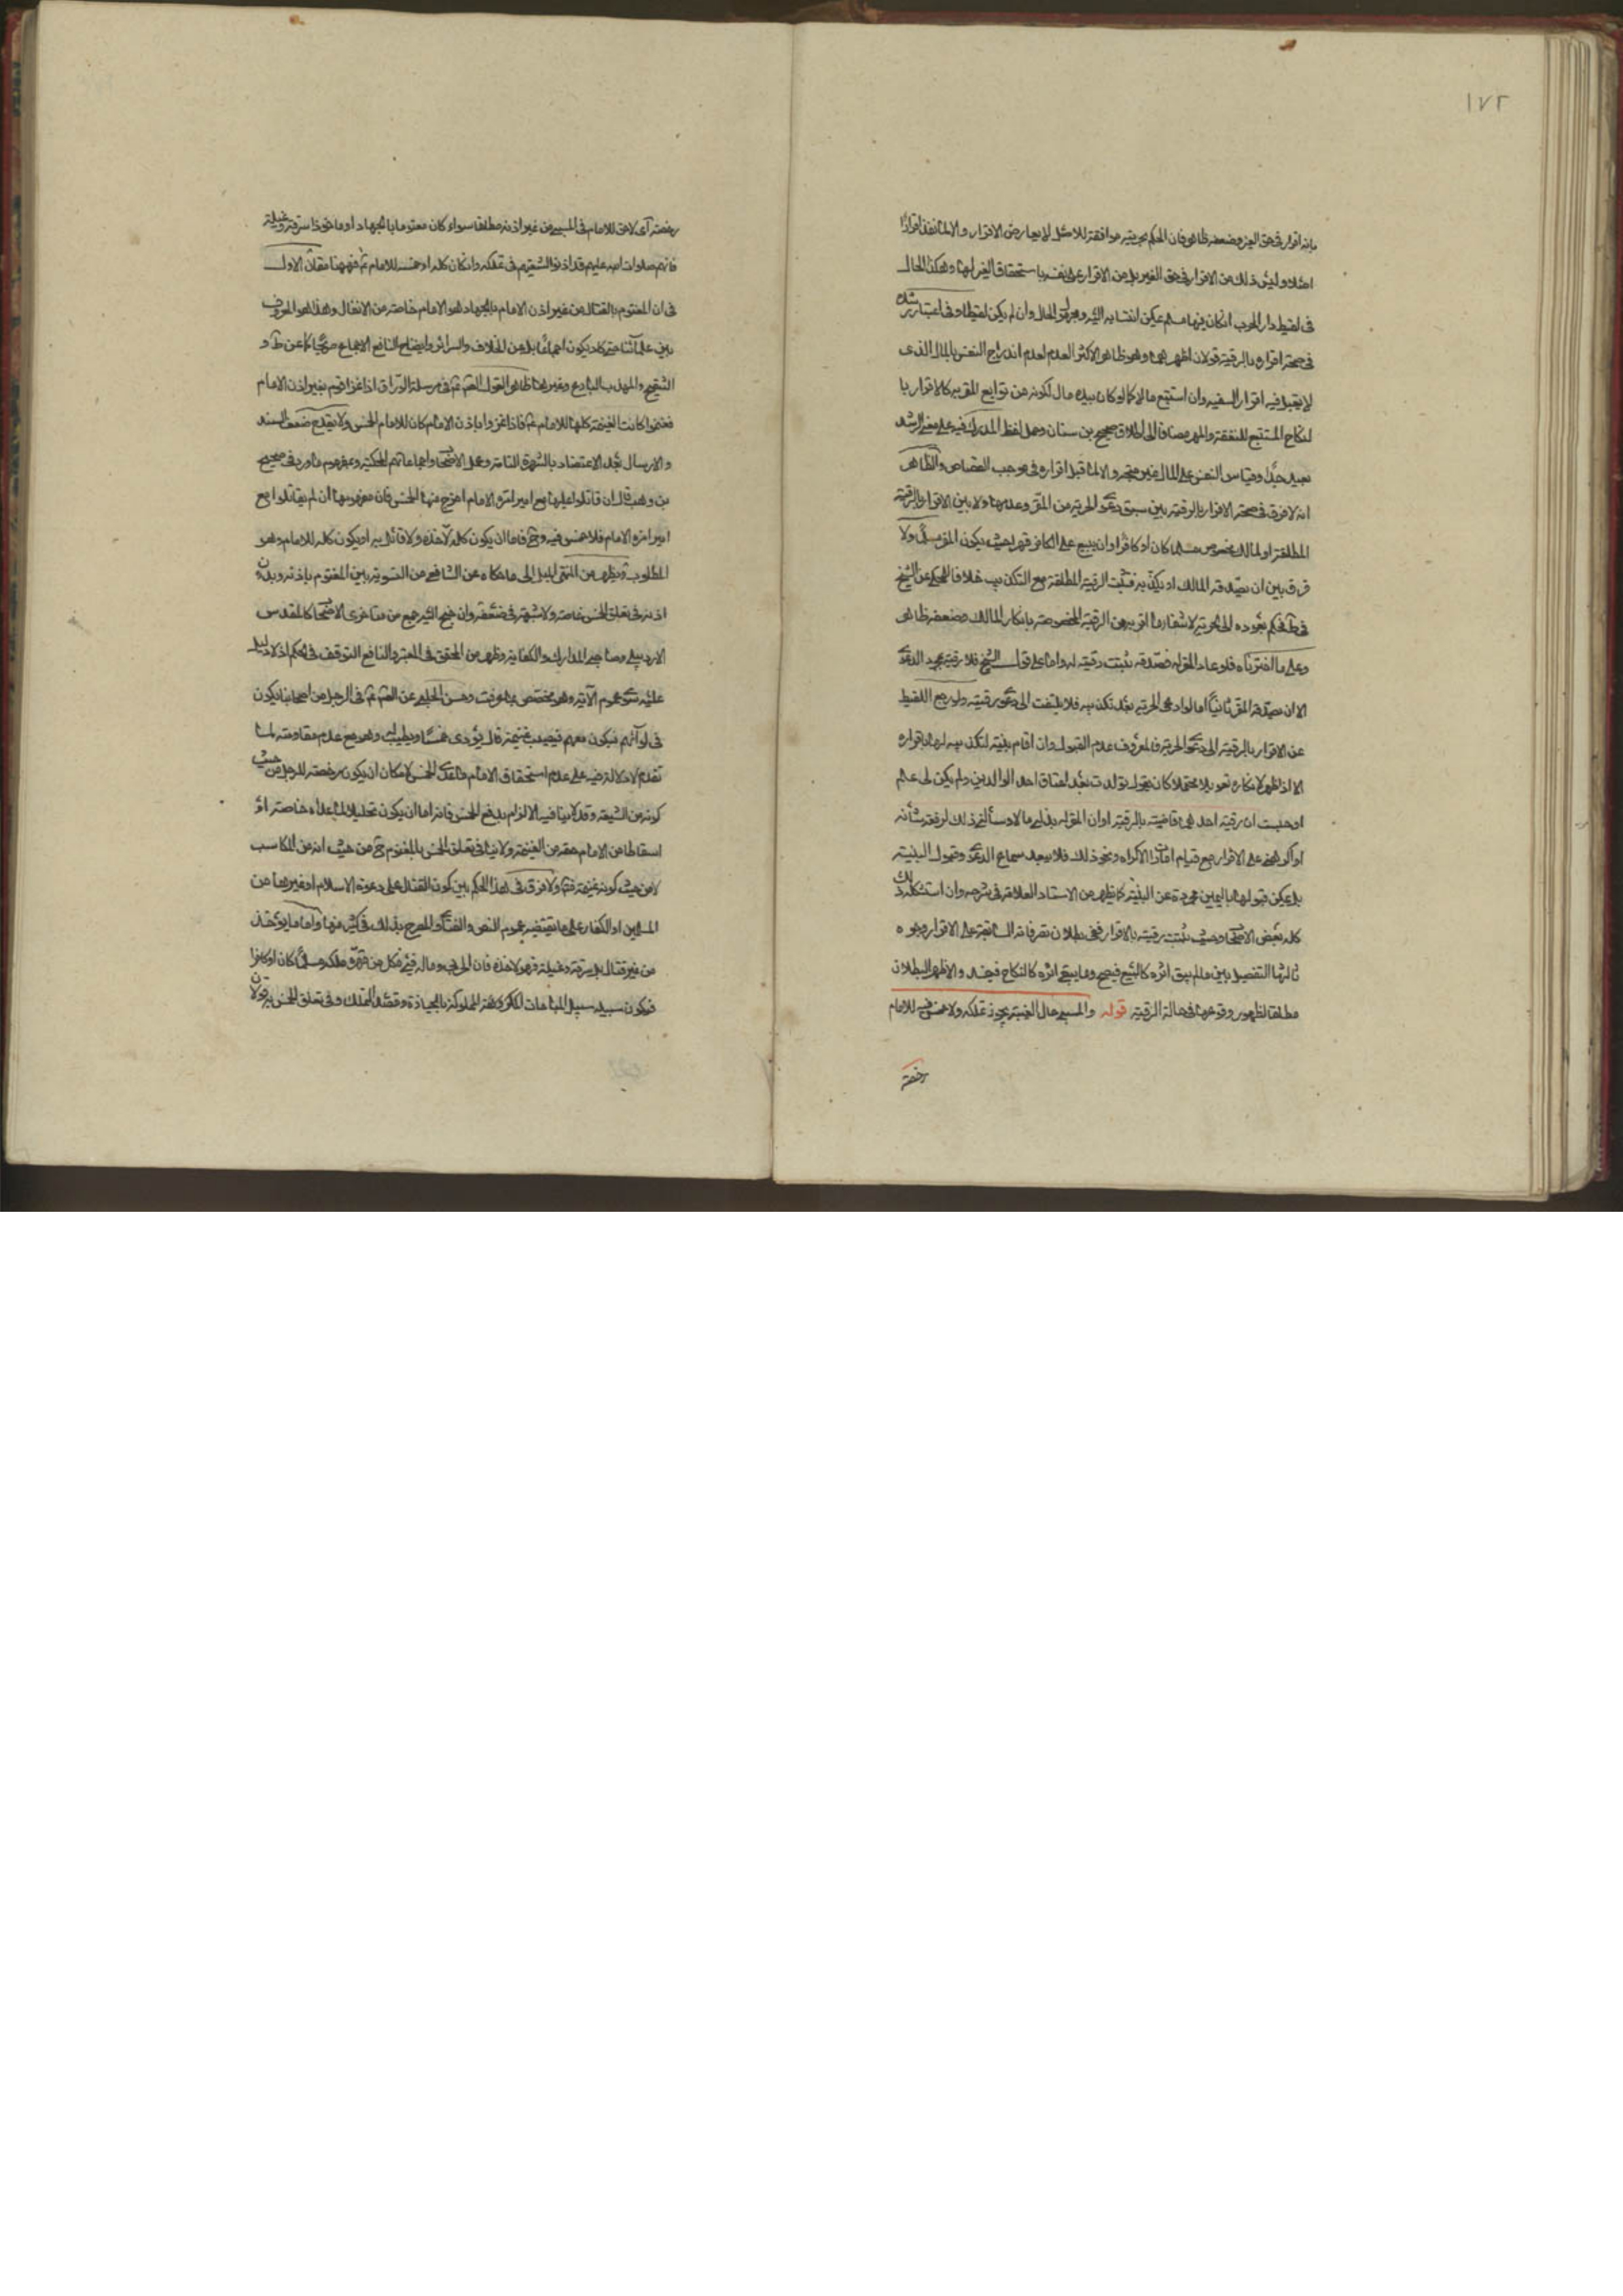 ١٧٢
بانه اقرار في حق الغير وضعفه ظاهر فان الحكم بحريته موافقة للاصل لا يعارض الاقرار والا لما نفذ اقرار
اصلا وليس ذلك من الاقرار في حق الغير بل من الاقرار على نفسه باستحقاق الغير لها وهكذا الحال
في لقيط دار الحرب ان كان فيها مسلم يمكن انتسابه اليه ومجهول الحال وان لم يكن لقيطا وفي اعتبار رشده
في صحة اقراره بالرقية قولان اظهرهما وهو ظاهر الاكثر العدم لعدم اندراج النفس بالمال الذي
لا يقبل فيه اقرار السفيه وان استتبع مالا كما لو كان بيده مال لكونه من توابع المقر به كالاقرار با
لنكاح المستتبع للنفقة والمهر مضافا الى اطلاق صحيح بن سنان وحمل لفظ المدرك فيه على معنى الرشد
بعيد جدا وقياس النفس على المال غير متجه والا لما قبل اقراره في موجب القصاص والظاهر
انه لا فرق في صحة الاقرار بالرقية بين سبق دعوى الحرية من المقر وعدمها ولا بين الاقرار بالرقية
المطلقة او لمالك مخصوص مسلما كان او كافرا وان بيع على الكافر قهرا حيث يكون المقر مسلما ولا
فرق بين ان يصدقه المالك او يكذبه فتثبت الرقية المطلقة مع التكذيب خلافا للمحكي عن الشيخ
في ط فحكم بعوده الى الحرية لاشعار ما اقر به من الرقية المخصوصة بانكار المالك وضعفه ظاهر
وعلى ما اخترناه فلو عاد المقر له فصدقه ثبتت رقيته له واما على قول الشيخ فلا رقية بمجرد الدعوى
الا ان يصدقه المقر ثانيا اما لو ادعى الحرية بعد تكذيبه فلا يلتفت الى دعوى رقيته ولو رجع اللقيط
عن الاقرار بالرقية الى دعوى الحرية فالمعروف عدم القبول وان اقام بينة لتكذيبه لها باقراره
الا اذا اظهر لانكاره تعويلا محتملا كان يقول تولدت بعد اعتاق احد الوالدين ولم يكن لي علم
او حسبت ان رقية احدهما قاضية بالرقية او ان المقر له بذل لي مالا وسألني ذلك لرفعة شأنه
او اكرهني على الاقرار مع قيام امارات الاكراه ونحو ذلك فلا يبعد سماع الدعوى وقبول البينة
بل يمكن قبولها باليمين مجردة عن البينة كما يظهر من الاستاد العلامة في شرحه وان استشكل ذلك
كله بعض الاصحاب وحيث تثبت رقيته بالاقرار ففي بطلان تصرفاته السابقة على الاقرار وجوه
ثالثها التفصيل بين ما لم يبق اثره كالبيع فيصح وما يبقى اثره كالنكاح فيفسد والاظهر البطلان
مطلقا لظهور وقوعها في حالة الرقية قوله والمسبي حال الغيبة يجوز تملكه ولا خمس فيه للامام
رخصة
رخصة اي لا حق للامام في المسبي من غير اذنه مطلقا سواء كان مغنوما بالجهاد او ماخوذا سرقة وغيلة
فانهم صلوات الله عليهم قد اذنوا لشيعتهم في تملكه وان كان كله او خمسه للامام ثم فهيهنا مقامان الاول
في ان المغنوم بالقتال من غير اذن الامام بالجهاد هو الامام خاصة من الانفال وهذا هو المعروف
بين علمائنا حتى كاد يكون اجماعا بل عن الخلاف والسرائر وايضاح النافع الاجماع صريحا كما عن ط و
التنقيح والمهذب البارع وغيرهما ظاهرا لقول الصم ع في مرسلة الوراق اذا غزا قوم بغير اذن الامام
فغنموا كانت الغنيمة كلها للامام ع فاذا غزوا باذن الامام كان للامام الخمس ولا يقدح ضعف السند
والارسال بعد الاعتضاد بالشهرة التامة وعمل الاصحاب واجماعاتهم المحكية ومفهوم ما ورد في صحيح
بن وهب قال ان قاتلوا عليها مع امير امره الامام اخرج منها الخمس فان مفهومها ان لم يقاتلوا مع
امير امره الامام فلا خمس فيه وح فاما ان يكون كله لاخذه ولا قائل به او يكون كله للامام وهو
المطلوب ويظهر من المنتهى الميل الى ما حكاه عن الشافعي من التسوية بين المغنوم باذنه وبدون
اذنه في تعلق الخمس خاصة ولا شبهة في ضعفه وان جنح اليه جمع من متاخري الاصحاب كالمقدس
الاردبيلي وصاحبي المدارك والكفاية وظهر من المحقق في المعتبر والنافع التوقف في الحكم اذ لا دليل
عليه سوى عموم الآية وهو مخصص بما عرفت وحسن الحلبي عن الصم ع في الرجل من اصحابنا يكون
في لوائهم فيكون معهم فيصيب غنيمة قال يؤدي خمسا ويطيب له وهو مع عدم مقاومته لما
تقدم لا دلالة فيه على عدم استحقاق الامام ما عدى الخمس لامكان ان يكون رخصة للرجل من حيث
كونه من الشيعة وقد لا ينافيه الالزام بدفع الخمس فانه اما ان يكون تحليلا لما عداه خاصة او
اسقاطا من الامام حقه من الغنيمة ولا ينافي تعلق الخمس بالمغنوم ح من حيث انه من المكاسب
لا من حيث كونه غنيمة فتم ولا فرق في هذا الحكم بين كون القتال على دعوة الاسلام او غيرها من
المسلمين او الكفار على ما يقتضيه عموم النص والفتاوى والمصرح بذلك في كثير منها واما ما يؤخذ
من غير قتال بل سرقة وغيلة فهو لاخذه فان الحربي وماله فيء فكل من قهره ملكه مسلما كان او كافرا
فيكون سبيله سبيل المباحات المملوكة بالحيازة وقصد التملك وفي تعلق الخمس به قولان